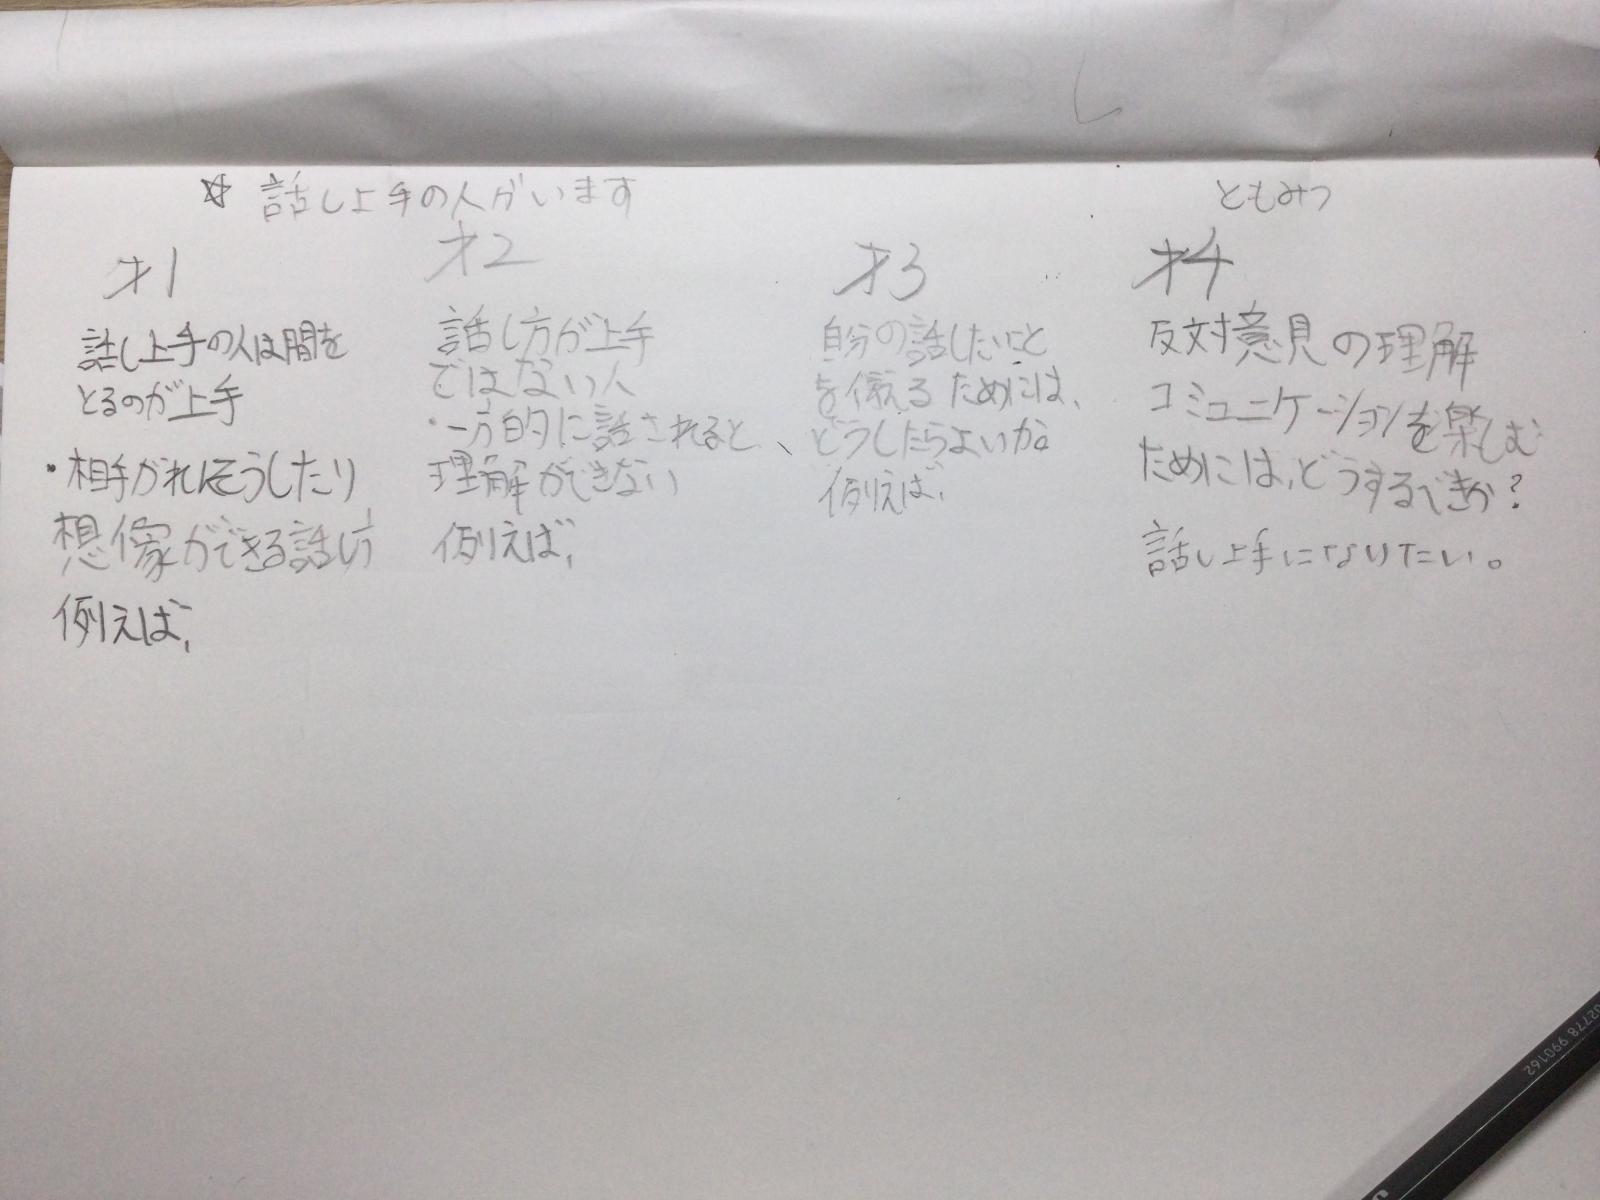 ☆ 話し上手の人がいます
ともみつ
才1
話し上手の人は間を
とるのが上手
・相手がれんそうしたり
想像ができる話し方
例えば、
才2
話し方が上手
ではない人
・一方的に話されると、
理解ができない
例えば、
才3
自分の話したいこと
を伝えるためには、
どうしたらよいか。
例えば、
才4
反対意見の理解
コミュニケーションを楽しむ
ためには、どうするべきか?
話し上手になりたい。
02778 990162